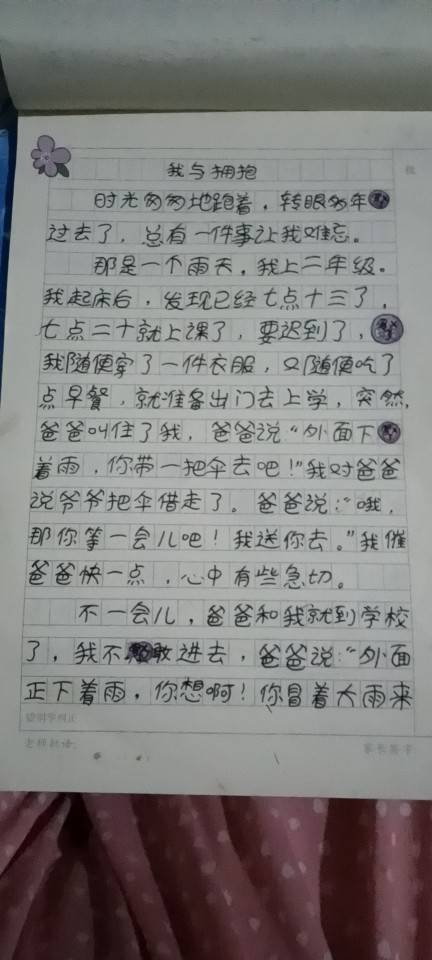 我与拥抱
时光匆匆地跑着，转眼多年
过去了，总有一件事让我难忘。
那是一个雨天，我上二年级。
我起床后，发现已经七点十三了，
七点二十就上课了，要迟到了，
我随便穿了一件衣服，只随便吃了
点早餐，就准备出门去上学，突然，
爸爸叫住了我，爸爸说“外面下
着雨，你带一把伞去吧！”我对爸爸
说爷爷把伞借走了。爸爸说：“哦，
那你等一会儿吧！我送你去。”我催
爸爸快一点，心中有些急切。
不一会儿，爸爸和我就到学校
了，我不敢进去，爸爸说：“外面
正下着雨，你想啊！你冒着大雨来
错别字纠正
老师批语：
家长签字：